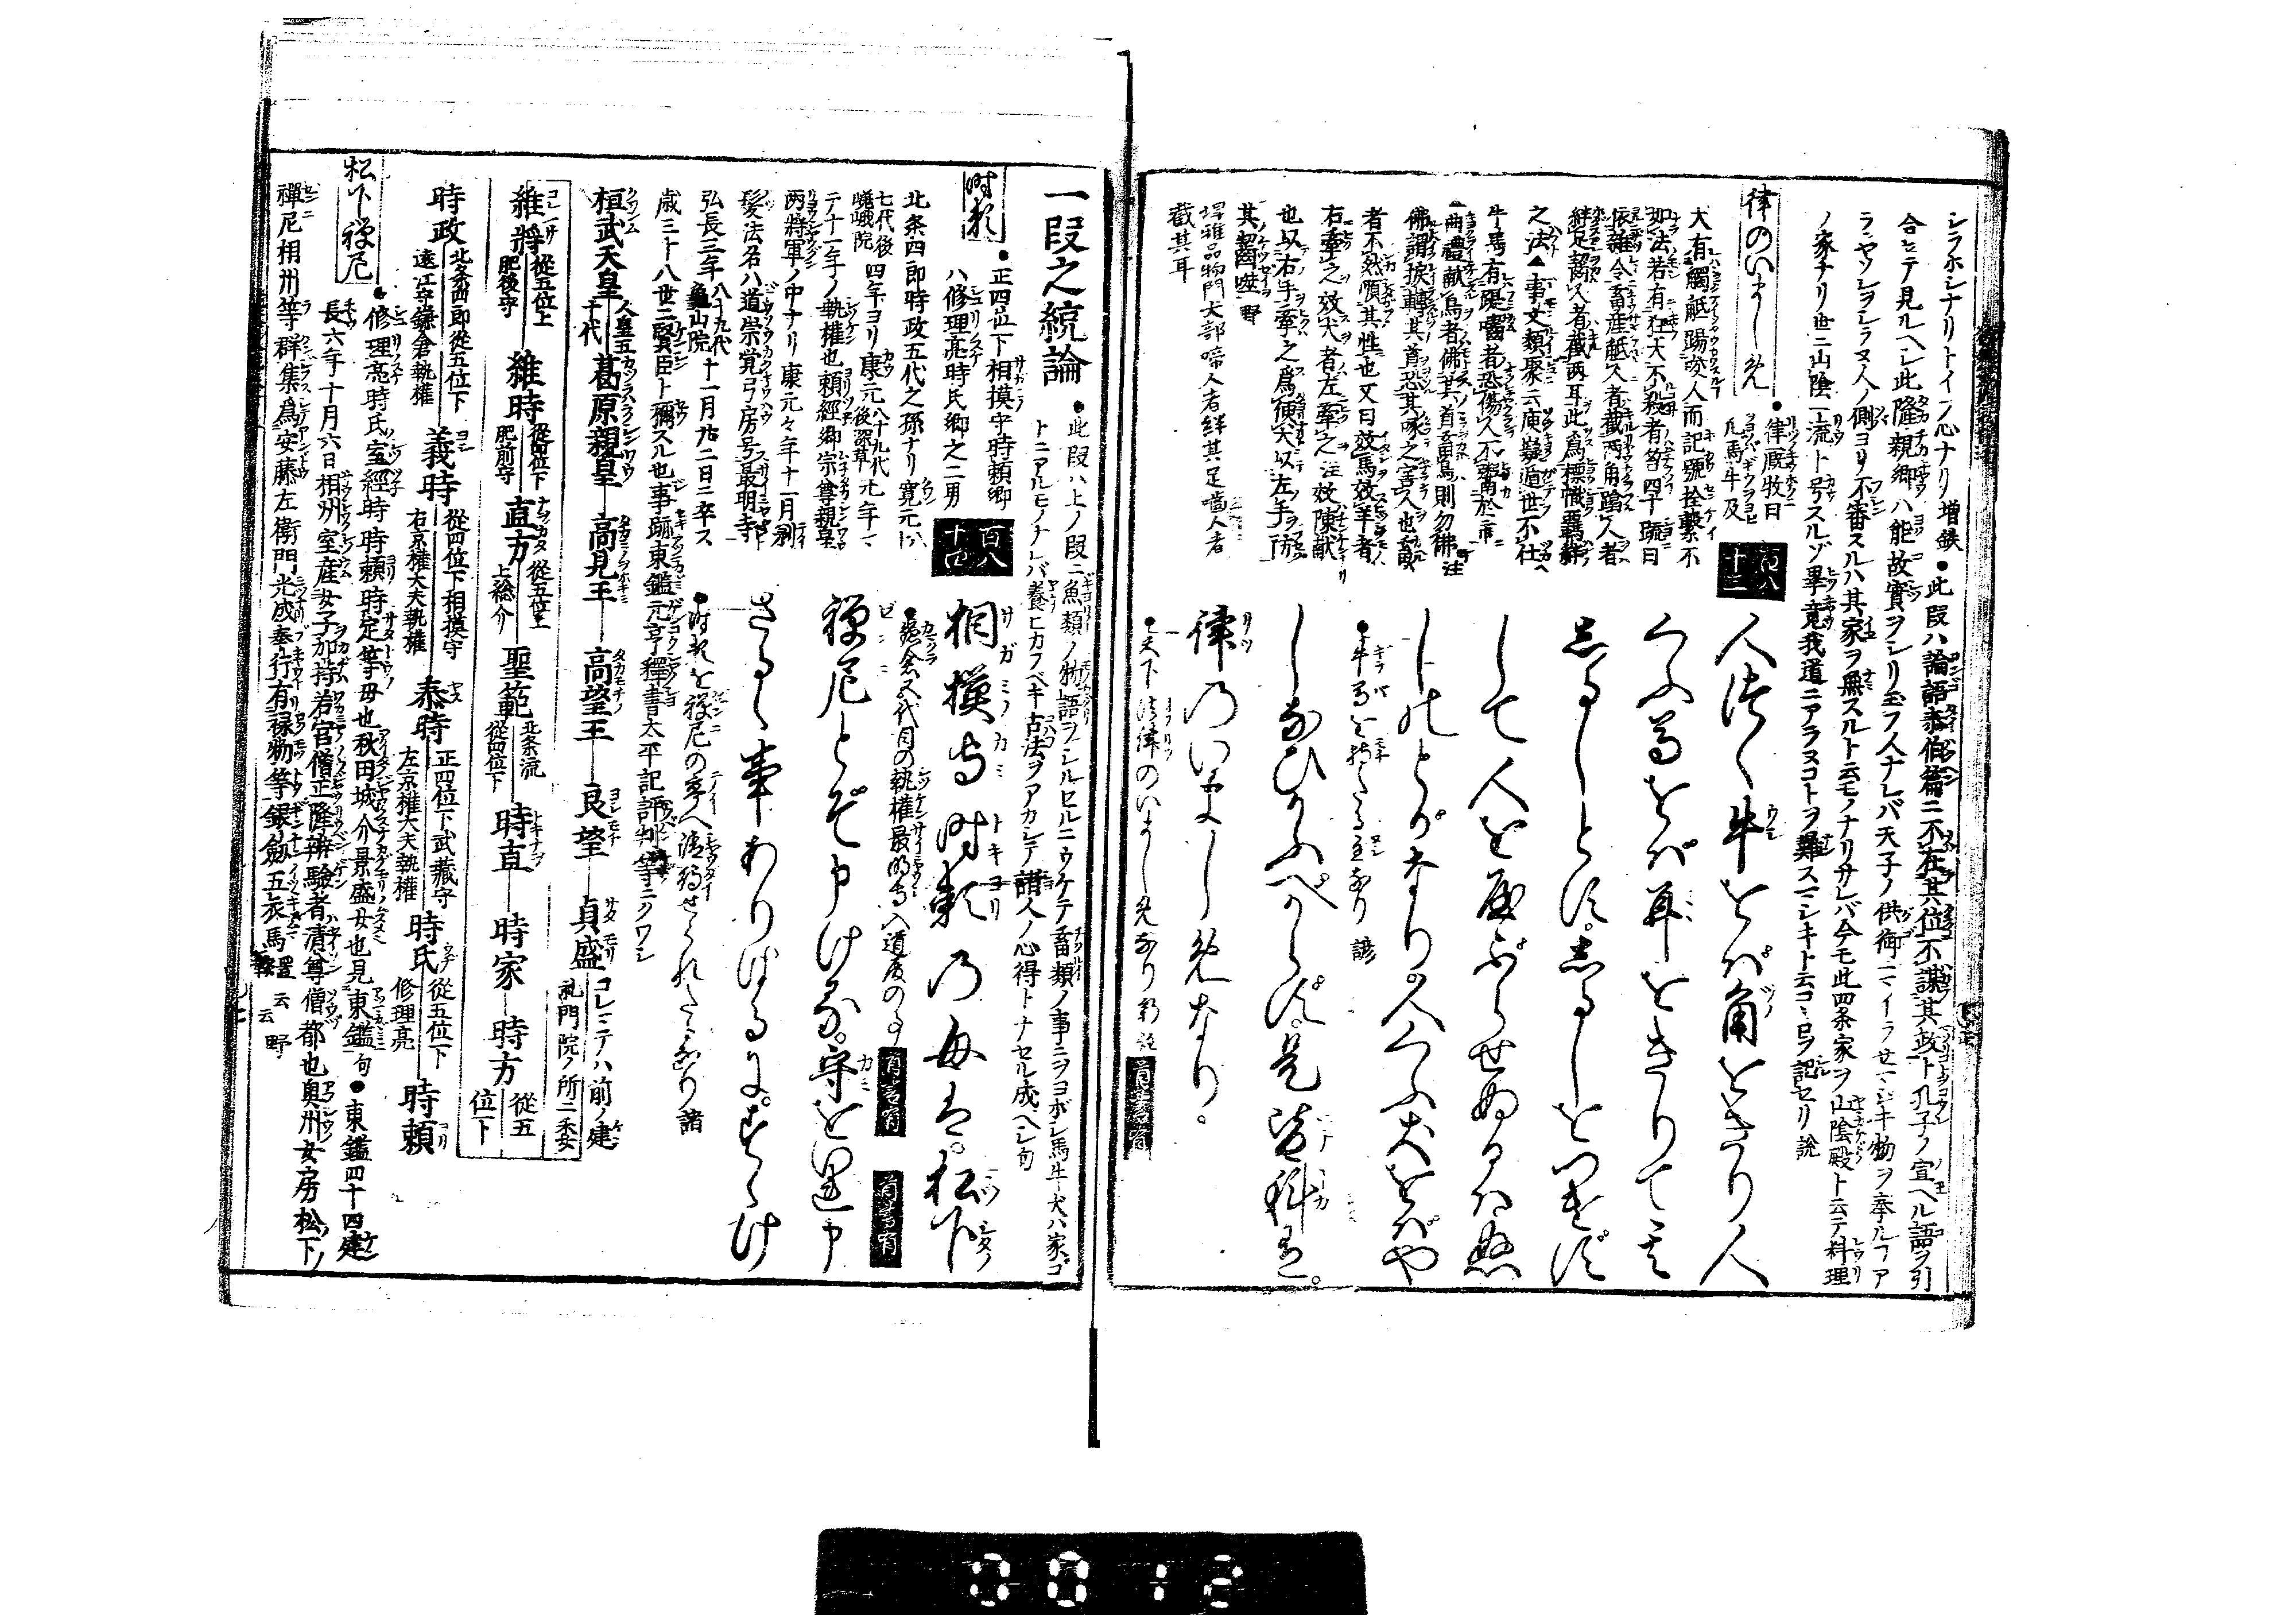 シラホシナリトイフ心ナリ増鉄●此段ハ論語泰伯篇ニ不在其位不謀其政ト孔子ノ宣ヘル語ヲ引
合セテ見ルヘシ此隆親郷ハ能故實ヲシリ玉フ人ナレバ天子ノ供御ニマイラセマジキ物ヲ奉ルヿア
ラヤソレヲシラヌ人ノ側ヨリ不審スルハ其家ヲ無スルト云モノナリサレバ今モ此四条家ヲ山陰殿ト云テ料理
ノ家ナリ世ニ山陰一流ト号スルゾ畢竟我道ニアラヌコトヲ難スマシキト云コヽロヲ記セリ説
律のいましめ
●律厩牧曰
凡馬牛及
犬有觸觝踢咬人而記號拴繫不
如法若有狂犬不殺者笞四十疏曰
依雜令畜産觝人者截兩角踏人者
絆足齧人者截兩耳此爲標幟羈絆
之法▲事文類聚云庾嶷遁世不仕
牛馬有踶嚙者恐傷人不鬻於市
▲曲禮献鳥者佛其首畜鳥則勿佛注
佛謂捩轉其首恐其啄之害人也畜
者不然順其性也又曰效馬效羊者
右牽之效犬者左牽之注效陳献
也以右手牽之爲便犬以左手防
其齧噬 野
埤雅品物門大部啼人者絆其足嚙人者
截其耳
百八十三
人つく牛をば角をきり人
くふ馬をば耳をきりて其
しるしとす。しるしをつけず
して人をやぶらせぬるはぬ
しのとがなり。人くふ犬をばや
しなひかふべからず。是皆科有。
律のいましめなり。
●天下法律のいましめなり
一段之統論
●此段ハ上ノ段ニ魚類ノ物語ヲシルセルニウケテ畜類ノ事ニヲヨボシ馬牛犬ハ家ゴ
トニアルモノナレバ養ヒカフベキ古法ヲアカシテ諸人ノ心得トナセル成ヘシ句
時頼
●正四位下相摸守時頼郷
ハ修理亮時氏郷之二男
北条四郎時政五代之孫ナリ寛元八
七代後嵯峨院四年ヨリ康元八十九代後深草元年マ
テ十一年ノ執權也頼經郷宗尊親皇
両將軍ノ中ナリ康元々年十一月剃
髪法名ハ道崇覚弓房号最明寺
弘長三年八十九代龜山院十一月廿二日ニ卒ス
歳三十八世ニ賢臣ト稱スル也事跡東鑑元亨釋書太平記評判等ニクワシ
百八十四
相摸守時頼の母は。松下
禅尼とぞ申ける。守を入申
さるゝ事ありけるに。すゝけ
●鎌倉五代目の執權最明寺入道殿の事
●時頼を禅尼の亭へ請待せられたるなり 諸
桓武天皇 人皇五十代 葛原親皇 高見王 高望王 良望 貞盛 コレマテハ前ノ建礼門院ノ所ニ委
維將 從五位上 肥後守 維時 從四位下 肥前守 直方 從五位上 上総介 聖範 北条流 從四位下 時直 時家 時方 從五位下
時政 北条四郎從五位下 遠江守鎌倉執權 義時 從四位下相摸守 右京權大夫執權 泰時 正四位下武藏守 左京權大夫執權 時氏 從五位下 修理亮 時頼
松下禅尼
●修理亮時氏室經時時頼時定等母也秋田城介景盛女也見東鑑句●東鑑四十四建
長六年十月六日相州室産女子加持若宮僧正隆辨驗者清尊僧都也奥州女房松下ノ
禪尼相州等群集爲安藤左衛門光成奉行有禄物等銀劔五衣馬置云云 野